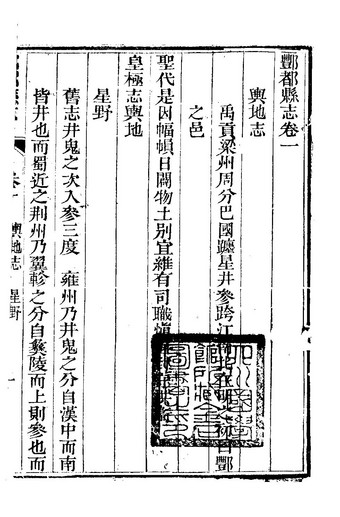 酆都縣志卷一
輿地志
禹貢梁州周分巴國躔星井參跨江
酆
之邑
聖代是因幅幀日闢物土别宜維有司職
皇極志輿地
星野
舊志井鬼之次入參三度 雍州乃井鬼之分自漢中而南
皆井也而蜀近之荆州乃翼軫之分自夔陵而上則參也而
輿地志 星野 一